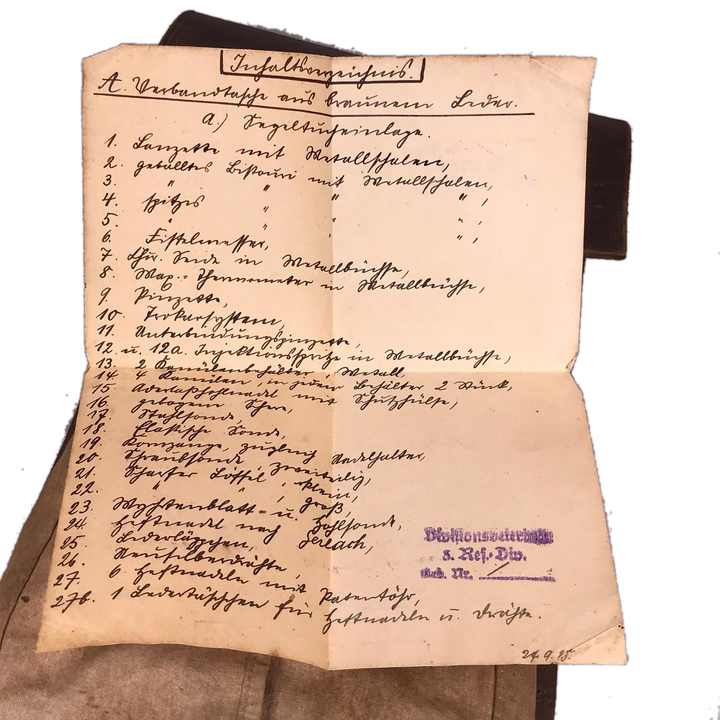 Inhaltsverzeichnis.
A. Verbandtasche aus braunem Leder.
a.) Segeltucheinlage.
1. Lanzette mit Metallschalen,
2. geballtes Bistouri mit Metallschalen,
3. " " " " ,
4. spitzes " " " ,
5. " " " " ,
6. Fistelmesser,
7. Chir. Seide in Metallbüchse,
8. Max.-Thermometer in Metallbüchse,
9. Pinzette,
10. Trokarsystem,
11. Unterbindungspinzette,
12. u. 12a. Injektionsspritze in Metallbüchse,
13. 2 Kanülenbehälter, Metall,
14. 4 Kanülen, in jedem Behälter 2 Stück,
15. Aderlaßhohlnadel mit Schutzhülse,
16. gebogene Schere,
17. Stahlsonde,
18. Elastische Sonde,
19. Kornzange, zugleich Nadelhalter,
20. Schraubsonde, zweiteilig,
21. Scharfer Löffel, klein,
22. " " , groß,
23. Myrtenblatt- u. Hohlsonde,
24. Heftnadel nach Gerlach,
25. Lederläppchen,
26. Neusilberdrähte,
27. 6 Heftnadeln mit Patentöhr,
27b. 1 Ledertäschchen für Heftnadeln u. Drähte.
5. Res.-Div.
Nr.
24.9.15.